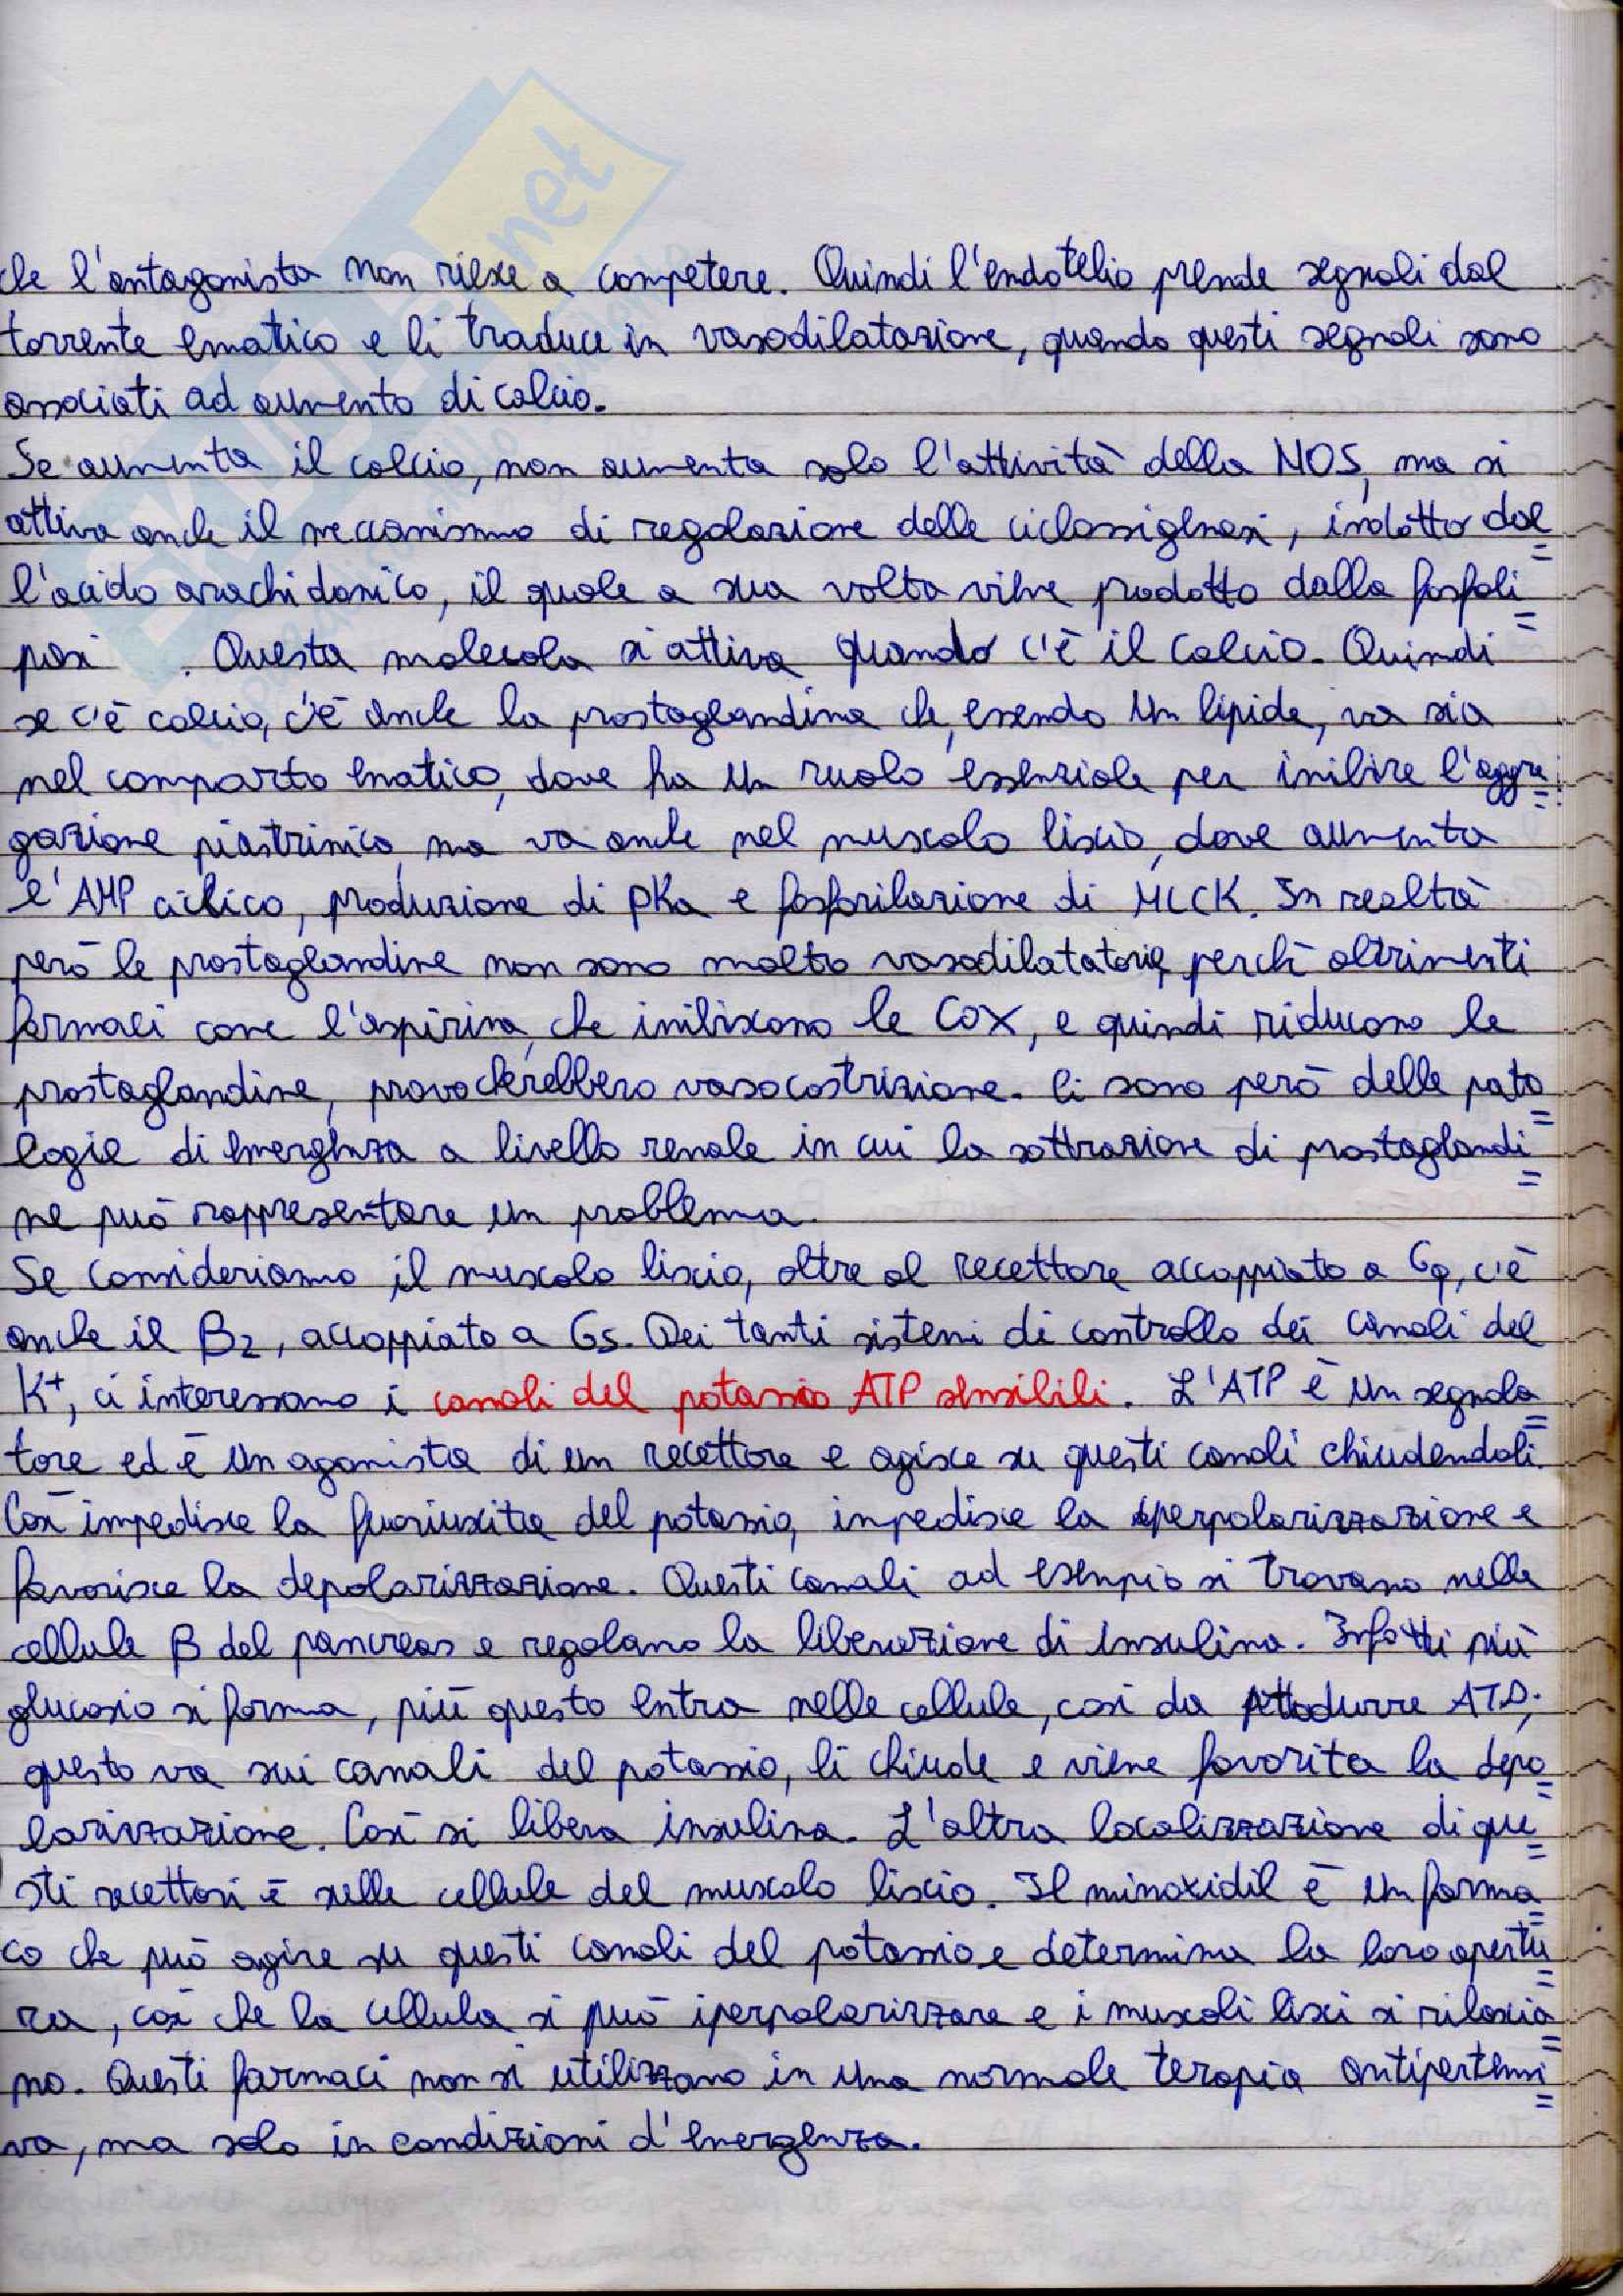 SKUOLA.net
che l'antagonista non riesce a competere. Quindi l'endotelio prende segnali dal
torrente ematico e li traduce in vasodilatazione, quando questi segnali sono
associati ad aumento di calcio.
Se aumenta il calcio, non aumenta solo l'attività della NOS, ma si
attiva anche il meccanismo di regolazione delle ciclossigenasi, indotto dal=
l'acido arachidonico, il quale a sua volta viene prodotto dalla fosfoli=
pasi . Questa molecola si attiva quando c'è il calcio. Quindi
se c'è calcio, c'è anche la prostaglandina che, essendo un lipide, va sia
nel comparto ematico, dove ha un ruolo essenziale per inibire l'aggre=
gazione piastrinica, ma va anche nel muscolo liscio, dove aumenta
l'AMP ciclico, produzione di pKa e fosforilazione di MLCK. In realtà
però le prostaglandine non sono molto vasodilatatorie, perchè altrimenti
farmaci come l'aspirina, che inibiscono le COX, e quindi riducono le
prostaglandine, provocherebbero vasocostrizione. Ci sono però delle pato=
logie di emergenza a livello renale in cui la sottrazione di prostaglandi=
ne può rappresentare un problema.
Se consideriamo il muscolo liscio, oltre al recettore accoppiato a Gq, c'è
anche il B2, accoppiato a Gs. Dei tanti sistemi di controllo dei canali del
K+, ci interessano i canali del potassio ATP sensibili. L'ATP è un segnala=
tore ed è un agonista di un recettore e agisce su questi canali chiudendoli.
Così impedisce la fuoriuscita del potassio, impedisce la iperpolarizzazione e
favorisce la depolarizzazione. Questi canali ad esempio si trovano nelle
cellule β del pancreas e regolano la liberazione di insulina. Infatti più
glucosio si forma, più questo entra nelle cellule, così da produrre ATP;
questo va sui canali del potassio, li chiude e viene favorita la depo=
larizzazione. Così si libera insulina. L'altra localizzazione di que=
sti recettori è sulle cellule del muscolo liscio. Il minoxidil è un farma=
co che può agire su questi canali del potassio e determina la loro apertu=
ra, così che la cellula si può iperpolarizzare e i muscoli lisci si rilascia=
no. Questi farmaci non si utilizzano in una normale terapia antipertensi=
va, ma solo in condizioni d'emergenza.